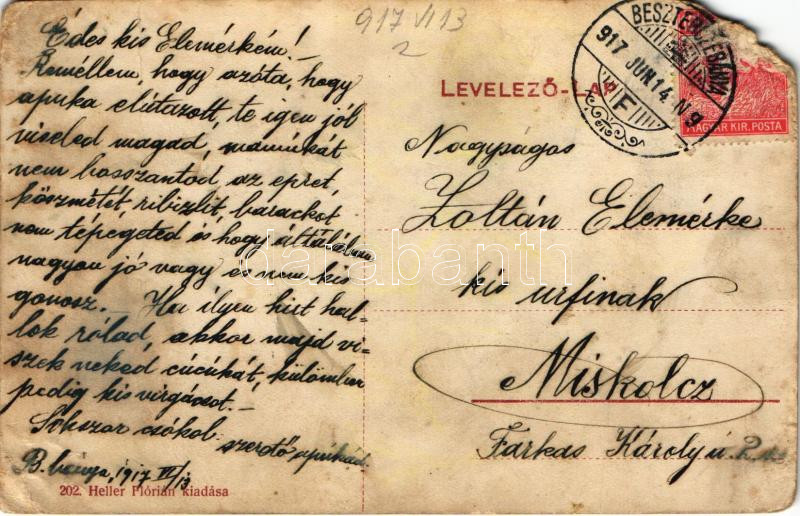 917 VI 13
2
Édes kis Elemérkém! –
Reméllem, hogy azóta, hogy
apuka elútazott, te igen jól
viseled magad, mamúkát
nem bosszantod az epret,
köszmétét, ribizlit, barackot
nem tépegeted és hogy általában
nagyon jó vagy és nem kis
gonosz. — Ha ilyen hirt hal-
lok rólad, akkor majd vi-
szek neked cúcúkát, külömben
pedig kis virgácsot. –
Sokszor csókol
szerető apukád.
B.bánya, 1917 VI/13
202. Heller Flórián kiadása
LEVELEZŐ-LAP
BESZTERCZEBÁNYA
917 JUN 14 N 9
F
MAGYAR KIR. POSTA
Nagyságos
Zoltán Elemérke
kis urfinak
Miskolcz
Farkas Károly u. 2
darabanth